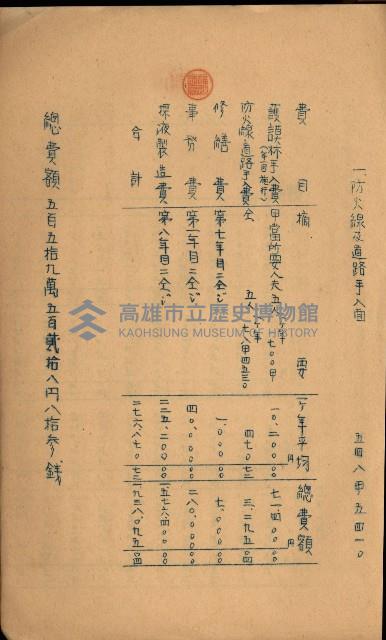 一防火線及道路手入面
五四八甲五四一〇
費目 摘要 一ケ年平均 總費額
甲當所要人夫五人 七〇〇甲 一〇、二〇〇〇〇 七一、四〇〇〇〇
防火線道路手入費 仝 五人 七八甲四五三〇 四七〇七二 三、二九五〇四
修繕費 第七年目ニ仝ジ 一、〇〇〇〇〇 七、〇〇〇〇〇
事務費 第一年目ニ仝ジ 四〇、〇〇〇〇〇 二八〇、〇〇〇〇〇
採液製造費 第八年目ニ仝ジ 二二五、二〇〇〇〇 一五七六、四〇〇〇〇
合計 二七六、八七〇七二 一九三八、〇九五〇四
總費額 五百五拾九萬五百貳拾八円八拾参錢
高雄市立歷史博物館
KAOHSIUNG MUSEUM OF HISTORY